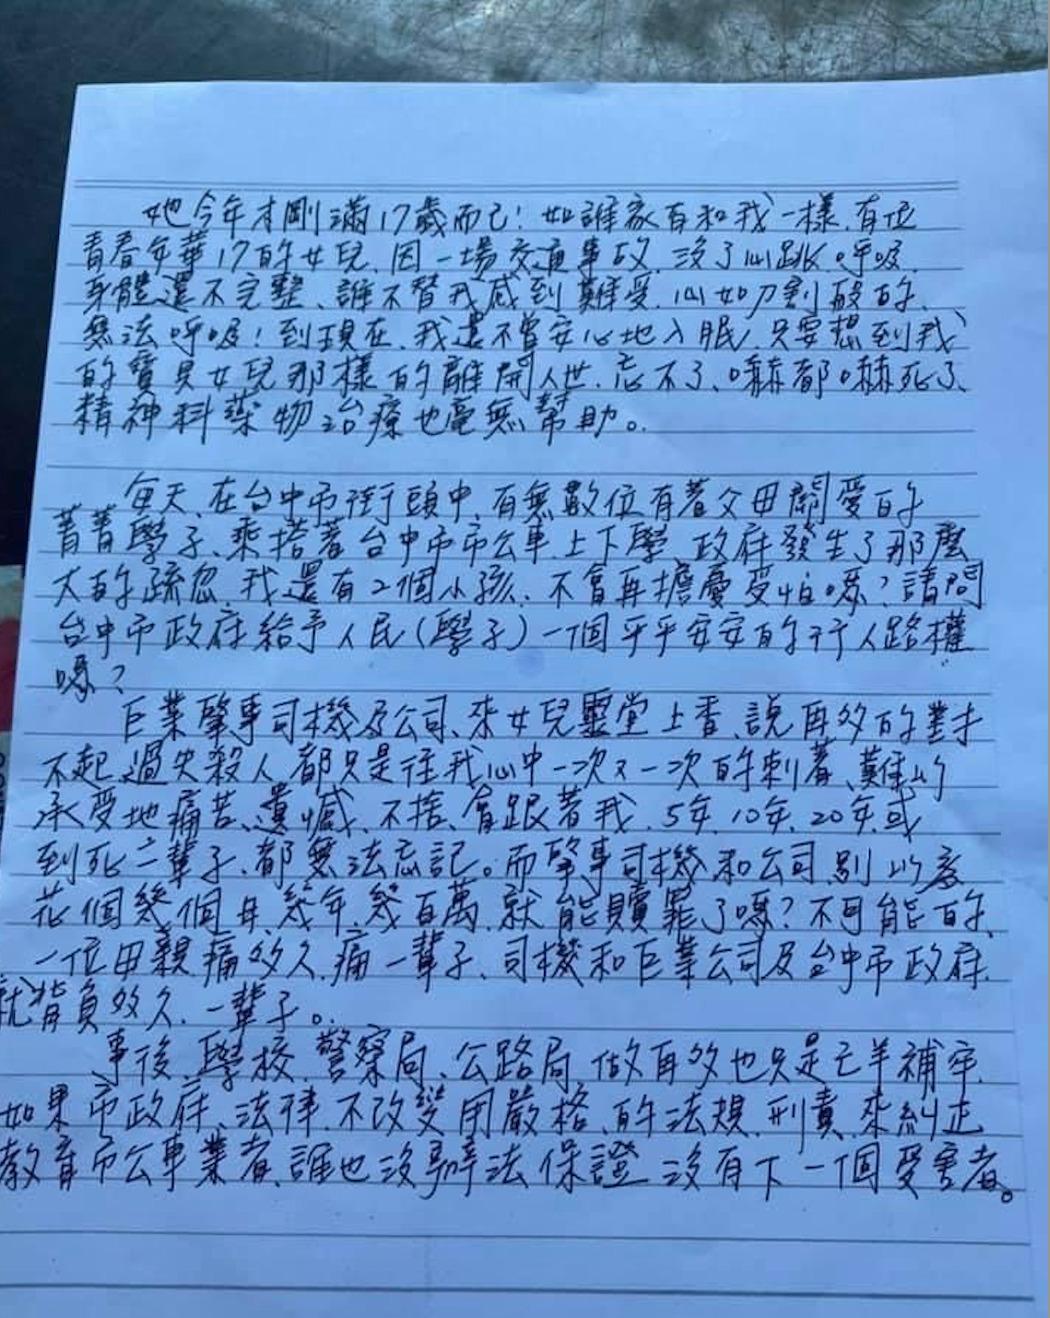 她今年才剛滿17歲而已!如誰家有和我一樣、有位
青春年華17的女兒、因一場交通事故、沒了心跳、呼吸、
身體還不完整、誰不替我感到難受、心如刀割般的、
無法呼吸!到現在、我還不曾安心地入眠、只要想到我
的寶貝女兒那樣的離開人世、忘不了、嚇都嚇死了、
精神科藥物治療也毫無幫助。
每天、在台中市街頭中、有無數位有著父母關愛的
菁菁學子、乘搭著台中市市公車、上下學、政府發生了那麼
大的疏忽、我還有2個小孩、不會再擔憂受怕嗎?請問
台中市政府給予人民(學子)一個平平安安的行人路權
嗎?
巨業肇事司機及公司、來女兒靈堂上香、說再多的對
不起、過失殺人都只是往我心中一次又一次的刺著、難以
承受地痛苦、遺憾、不捨、會跟著我、5年、10年、20年、或
到死、一輩子、都無法忘記。而肇事司機和公司、別以為
花個幾個月、幾年、幾百萬、就能贖罪了嗎?不可能的、
一位母親、痛多久、痛一輩子、司機和巨業公司及台中市政府、
就背負多久、一輩子。
事後、學校、警察局、公路局、做再多也只是亡羊補牢、
如果市政府、法律、不改變用嚴格、的法規、刑責、來糾正
教育市公車業者、誰也沒辦法保證、沒有下一個受害者。